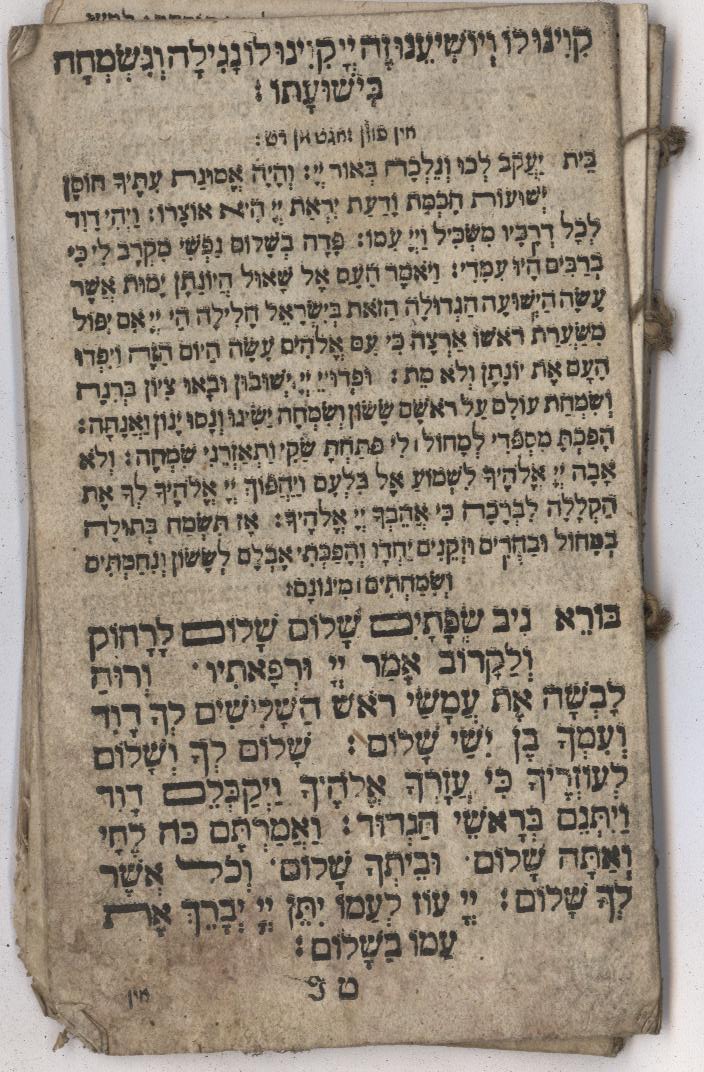 קִוִינוּ לוֹ וְיוֹשִׁיעֵנוּ זֶה יְיָ קִוִינוּ לוֹ נָגִילָה וְנִשְׂמְחָה
בִּישׁוּעָתוֹ:
בֵּית יַעֲקֹב לְכוּ וְנֵלְכָה בְּאוֹר יְיָ: וְהָיָה אֱמוּנַת עִתֶּיךָ חוֹסֶן
יְשׁוּעוֹת חָכְמַת וָדַעַת יִרְאַת יְיָ הִיא אוֹצָרוֹ: וַיְהִי דָוִד
לְכָל דְרָכָיו מַשְׂכִּיל וַיְיָ עִמוֹ: פָּדָה בְשָׁלוֹם נַפְשִׁי מִקְרָב לִי כִּי
בְרַבִּים הָיוּ עִמָדִי: וַיֹאמֶר הָעָם אֶל שָׁאוּל הֲיוֹנָתָן יָמוּת אֲשֶׁר
עָשָׂה הַיְשׁוּעָה הַגְדוֹלָה הַזֹאת בְּיִשְׂרָאֵל חָלִילָה חַי יְיָ אִם יִפּוֹל
מִשַּׂעֲרַת רֹאשׁוֹ אַרְצָה כִּי עִם אֱלֹהִים עָשָׂה הַיוֹם הַזֶה וַיִפְדוּ
הָעָם אֶת יוֹנָתָן וְלֹא מֵת: וּפְדוּיֵי יְיָ יְשׁוּבוּן וּבָאוּ צִיוֹן בְּרִנָה
וְשִׂמְחַת עוֹלָם עַל רֹאשָׁם שָׂשׂוֹן וְשִׂמְחָה יַשִׂיגוּ וְנָסוּ יָגוֹן וַאֲנָחָה:
הָפַכְתָּ מִסְפְּדִי לְמָחוֹל לִי פִּתַּחְתָּ שַׂקִי וַתְאַזְרֵנִי שִׂמְחָה: וְלֹא
אָבָה יְיָ אֱלֹהֶיךָ לִשְׁמוֹעַ אֶל בִּלְעָם וַיַהֲפוֹךְ יְיָ אֱלֹהֶיךָ לְךָ אֶת
הַקְלָלָה לִבְרָכָה כִּי אֲהֵבְךָ יְיָ אֱלֹהֶיךָ: אָז תִּשְׂמַח בְּתוּלָה
בְּמָחוֹל וּבַחֻרִים וּזְקֵנִים יַחְדָו וְהָפַכְתִּי אֶבְלָם לְשָׂשׂוֹן וְנִחַמְתִּים
וְשִׂמַחְתִּים מִיגוֹנָם:
בּוֹרֵא נִיב שְׂפָתָיִם שָׁלוֹם שָׁלוֹם לָרָחוֹק
וְלַקָרוֹב אָמַר יְיָ וּרְפָאתִיו וְרוּחַ
לָבְשָׁה אֶת עֲמָשַׂי רֹאשׁ הַשָׁלִישִׁים לְךָ דָוִד
וְעִמְךָ בֶן יִשַׁי שָׁלוֹם: שָׁלוֹם לְךָ וְשָׁלוֹם
לְעוֹזְרֶיךָ כִּי עֲזָרְךָ אֱלֹהֶיךָ וַיְקַבְּלֵם דָוִד
וַיִתְּנֵם בְּרָאשֵׁי הַגְדוּד: וַאֲמַרְתֶּם כֹּה לֶחָי
וְאַתָּה שָׁלוֹם וּבֵיתְךָ שָׁלוֹם וְכֹל אֲשֶׁר
לְךָ שָׁלוֹם: יְיָ עוֹז לְעַמוֹ יִתֵּן יְיָ יְבָרֵךְ אֶת
עַמוֹ בַשָׁלוֹם:
ט